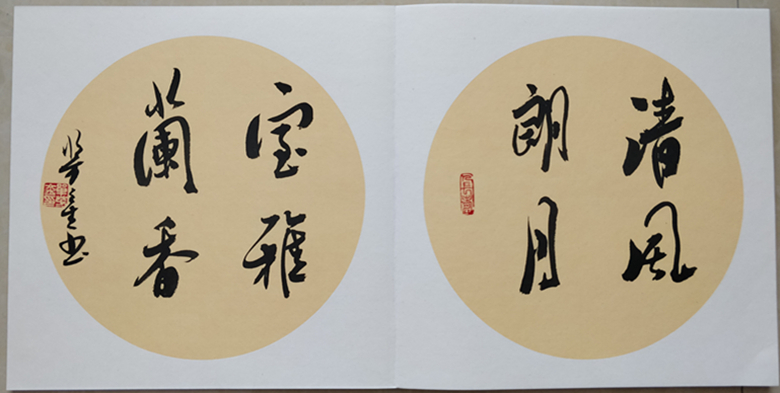 清風
朗月
室雅
蘭香